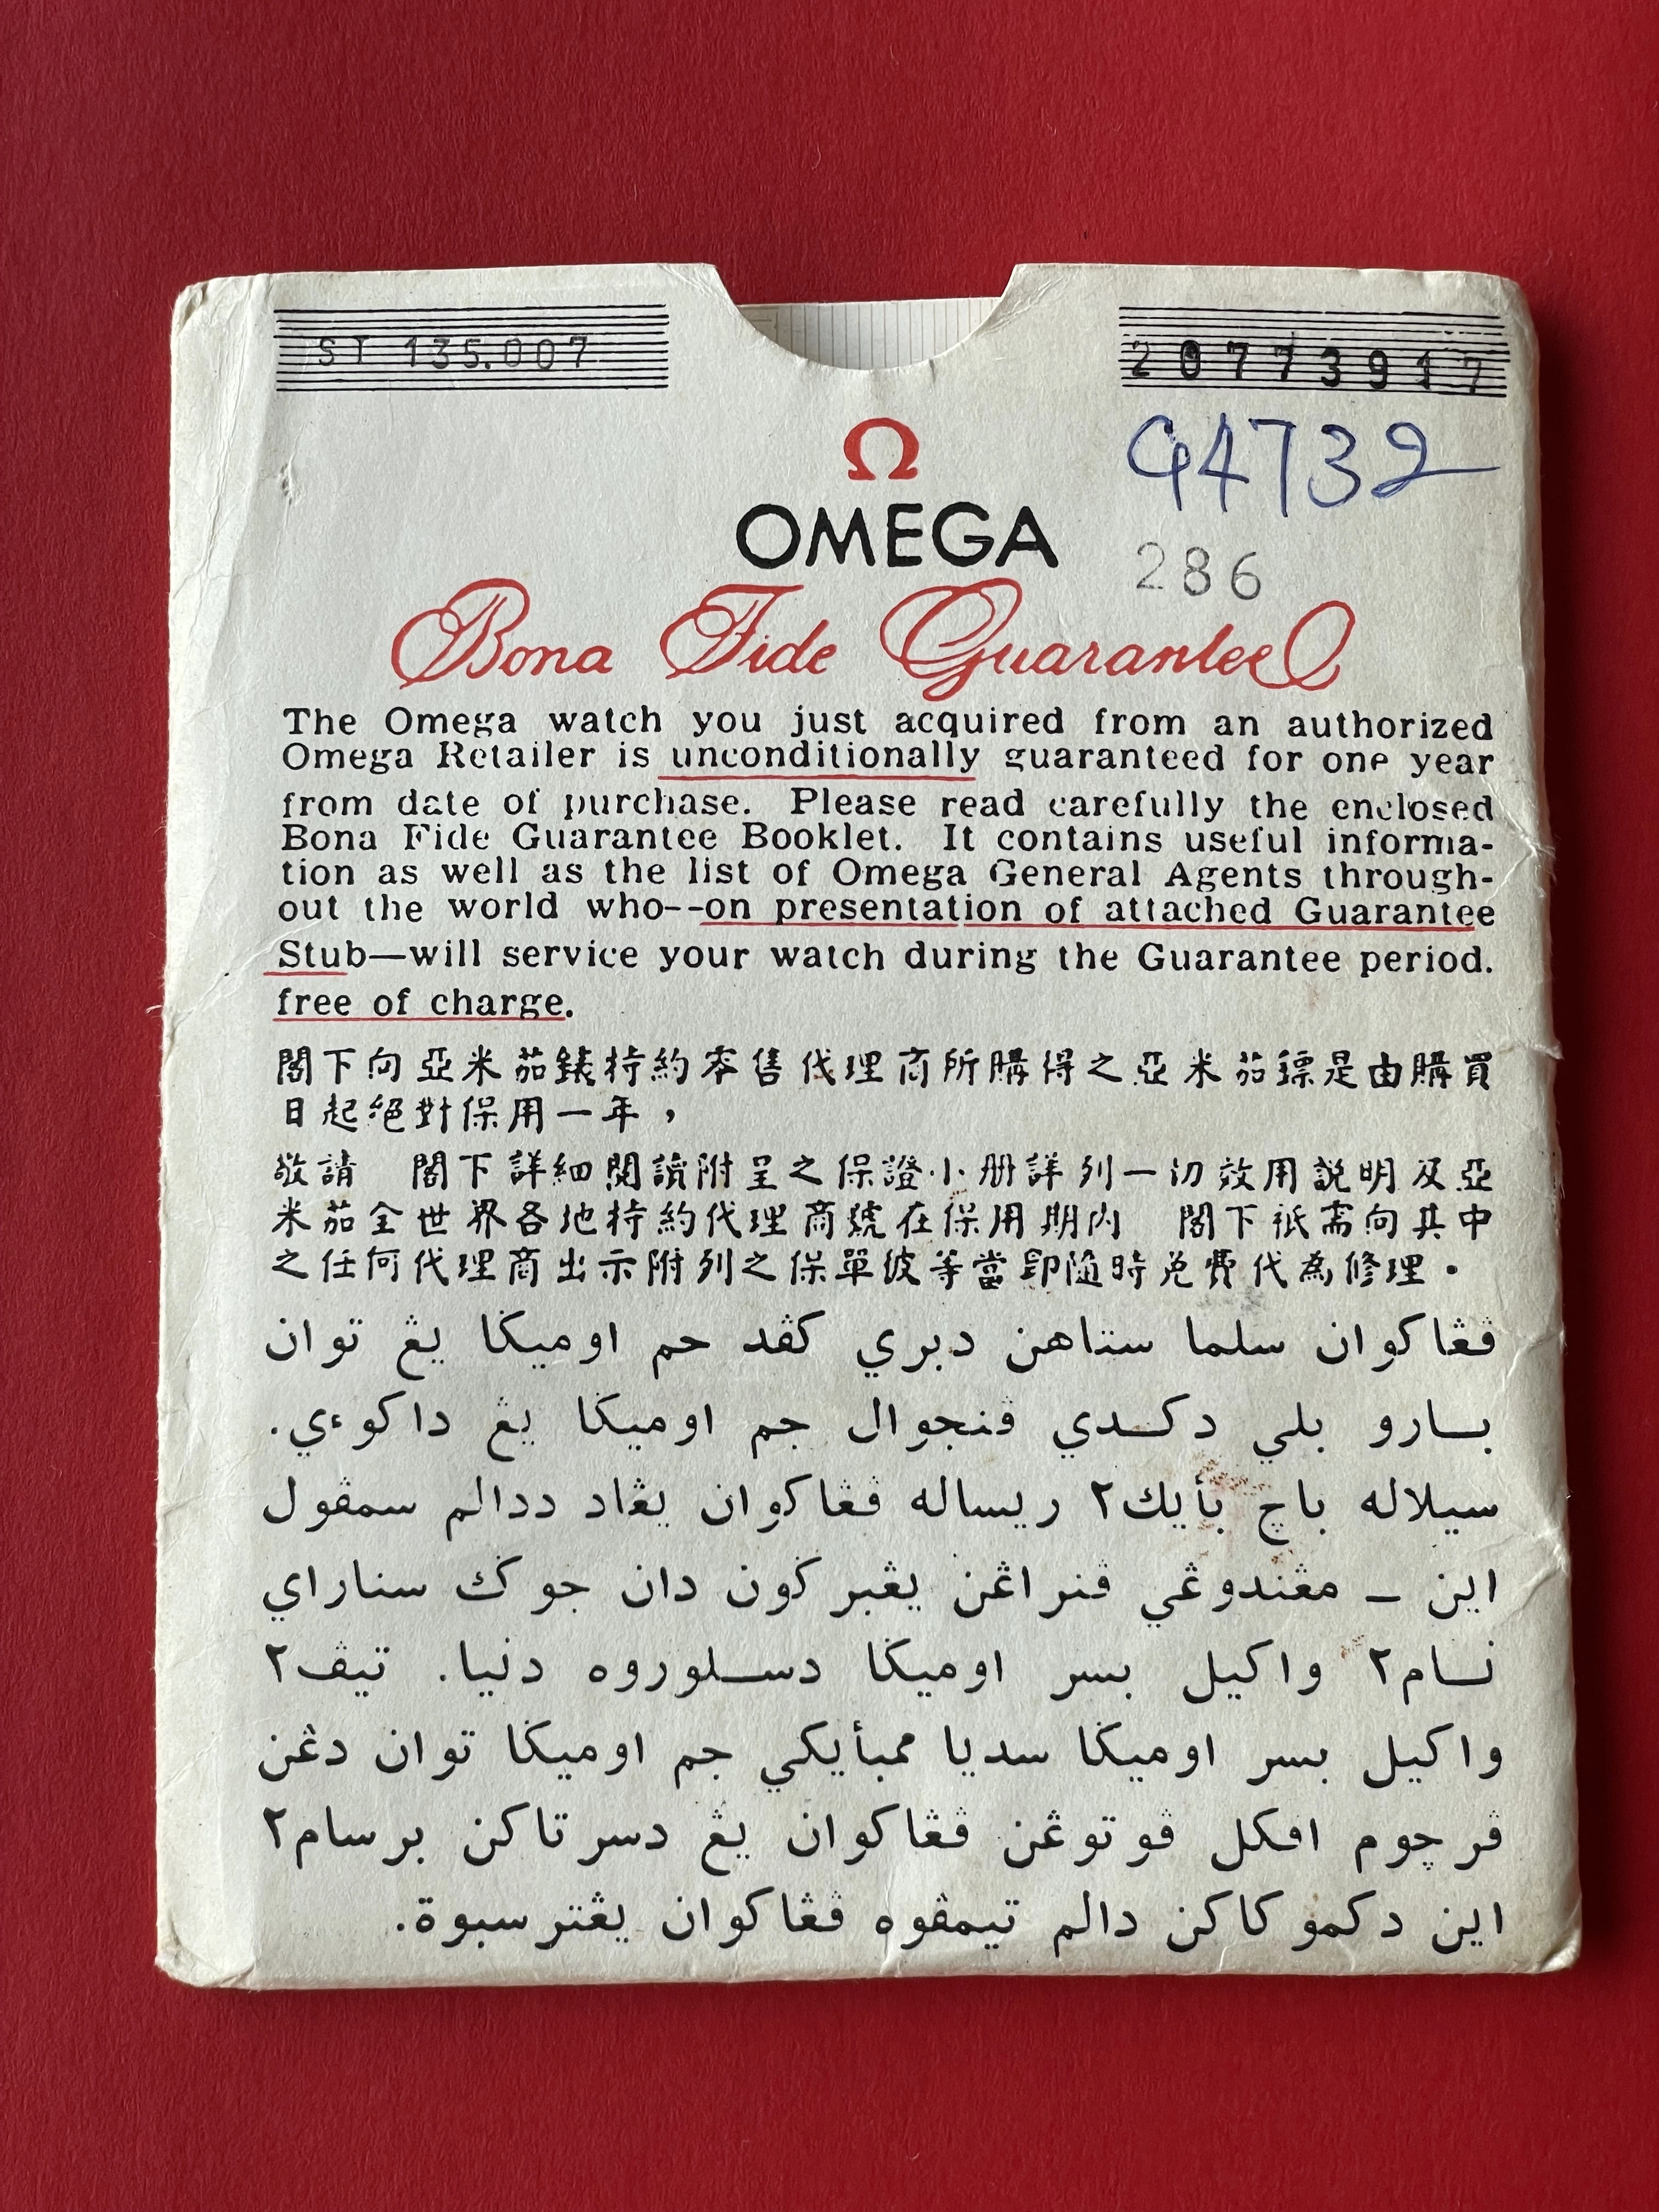 ST 135.007
20773917
G4732
Ω
OMEGA
286
Bona Fide Guarantee
The Omega watch you just acquired from an authorized
Omega Retailer is unconditionally guaranteed for one year
from date of purchase. Please read carefully the enclosed
Bona Fide Guarantee Booklet. It contains useful informa-
tion as well as the list of Omega General Agents through-
out the world who--on presentation of attached Guarantee
Stub—will service your watch during the Guarantee period.
free of charge.
閣下向亞米茄錶特約零售代理商所購得之亞米茄鏢是由購買
日起絕對保用一年，
敬請　閣下詳細閱讀附呈之保證小册詳列一切效用説明及亞
米茄全世界各地特約代理商號在保用期内　閣下祇需向其中
之任何代理商出示附列之保單彼等當即隨時免費代為修理．
ڤڠاکوان سلما ستاهن دبري کڤد جم اوميݢا يڠ توان
بــارو بلي دکــدي ڤنجوال جم اوميݢا يڠ داکوءي.
سيلاله باچ بأيك٢ ريساله ڤڠاکوان يڠاد ددالم سمڤول
اين ـ مڠندوڠي ڤنراڠن يڠبرݢون دان جوݢ سناراي
نــام٢ واکيل بسر اوميݢا دســلوروه دنيا. تيڤ٢
واکيل بسر اوميݢا سديا ممبأيکي جم اوميݢا توان دڠن
ڤرچوم اڤبل ڤوتوڠن ڤڠاکوان يڠ دسرتاکن برسام٢
اين دکموکاکن دالم تيمڤوه ڤڠاکوان يڠترسبوة.